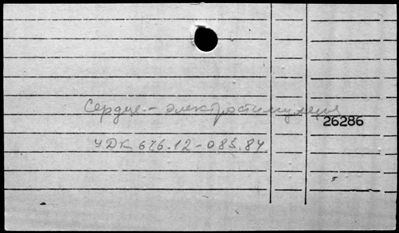 Сердце - электростимуляция
26286
УДК 616.12-085.84